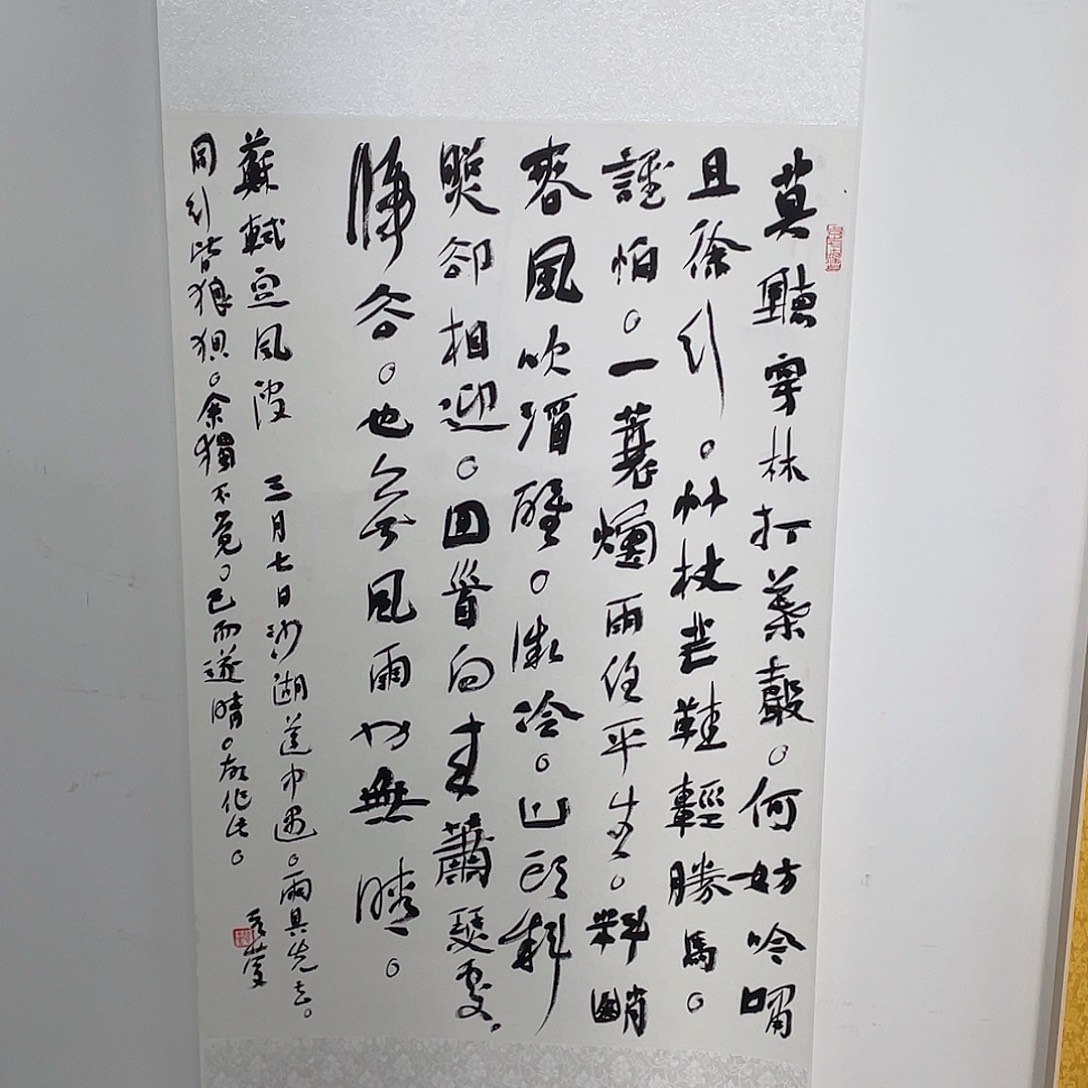 莫聽穿林打葉聲。何妨吟嘯
且徐行。竹杖芒鞋輕勝馬。
誰怕。一蓑煙雨任平生。料峭
春風吹酒醒。微冷。山頭斜
照卻相迎。回首向來蕭瑟處。
歸去。也無風雨也無晴。
蘇軾定風波 三月七日沙湖道中遇。雨具先去。
同行皆狼狽。余獨不覺。已而遂晴。故作此。